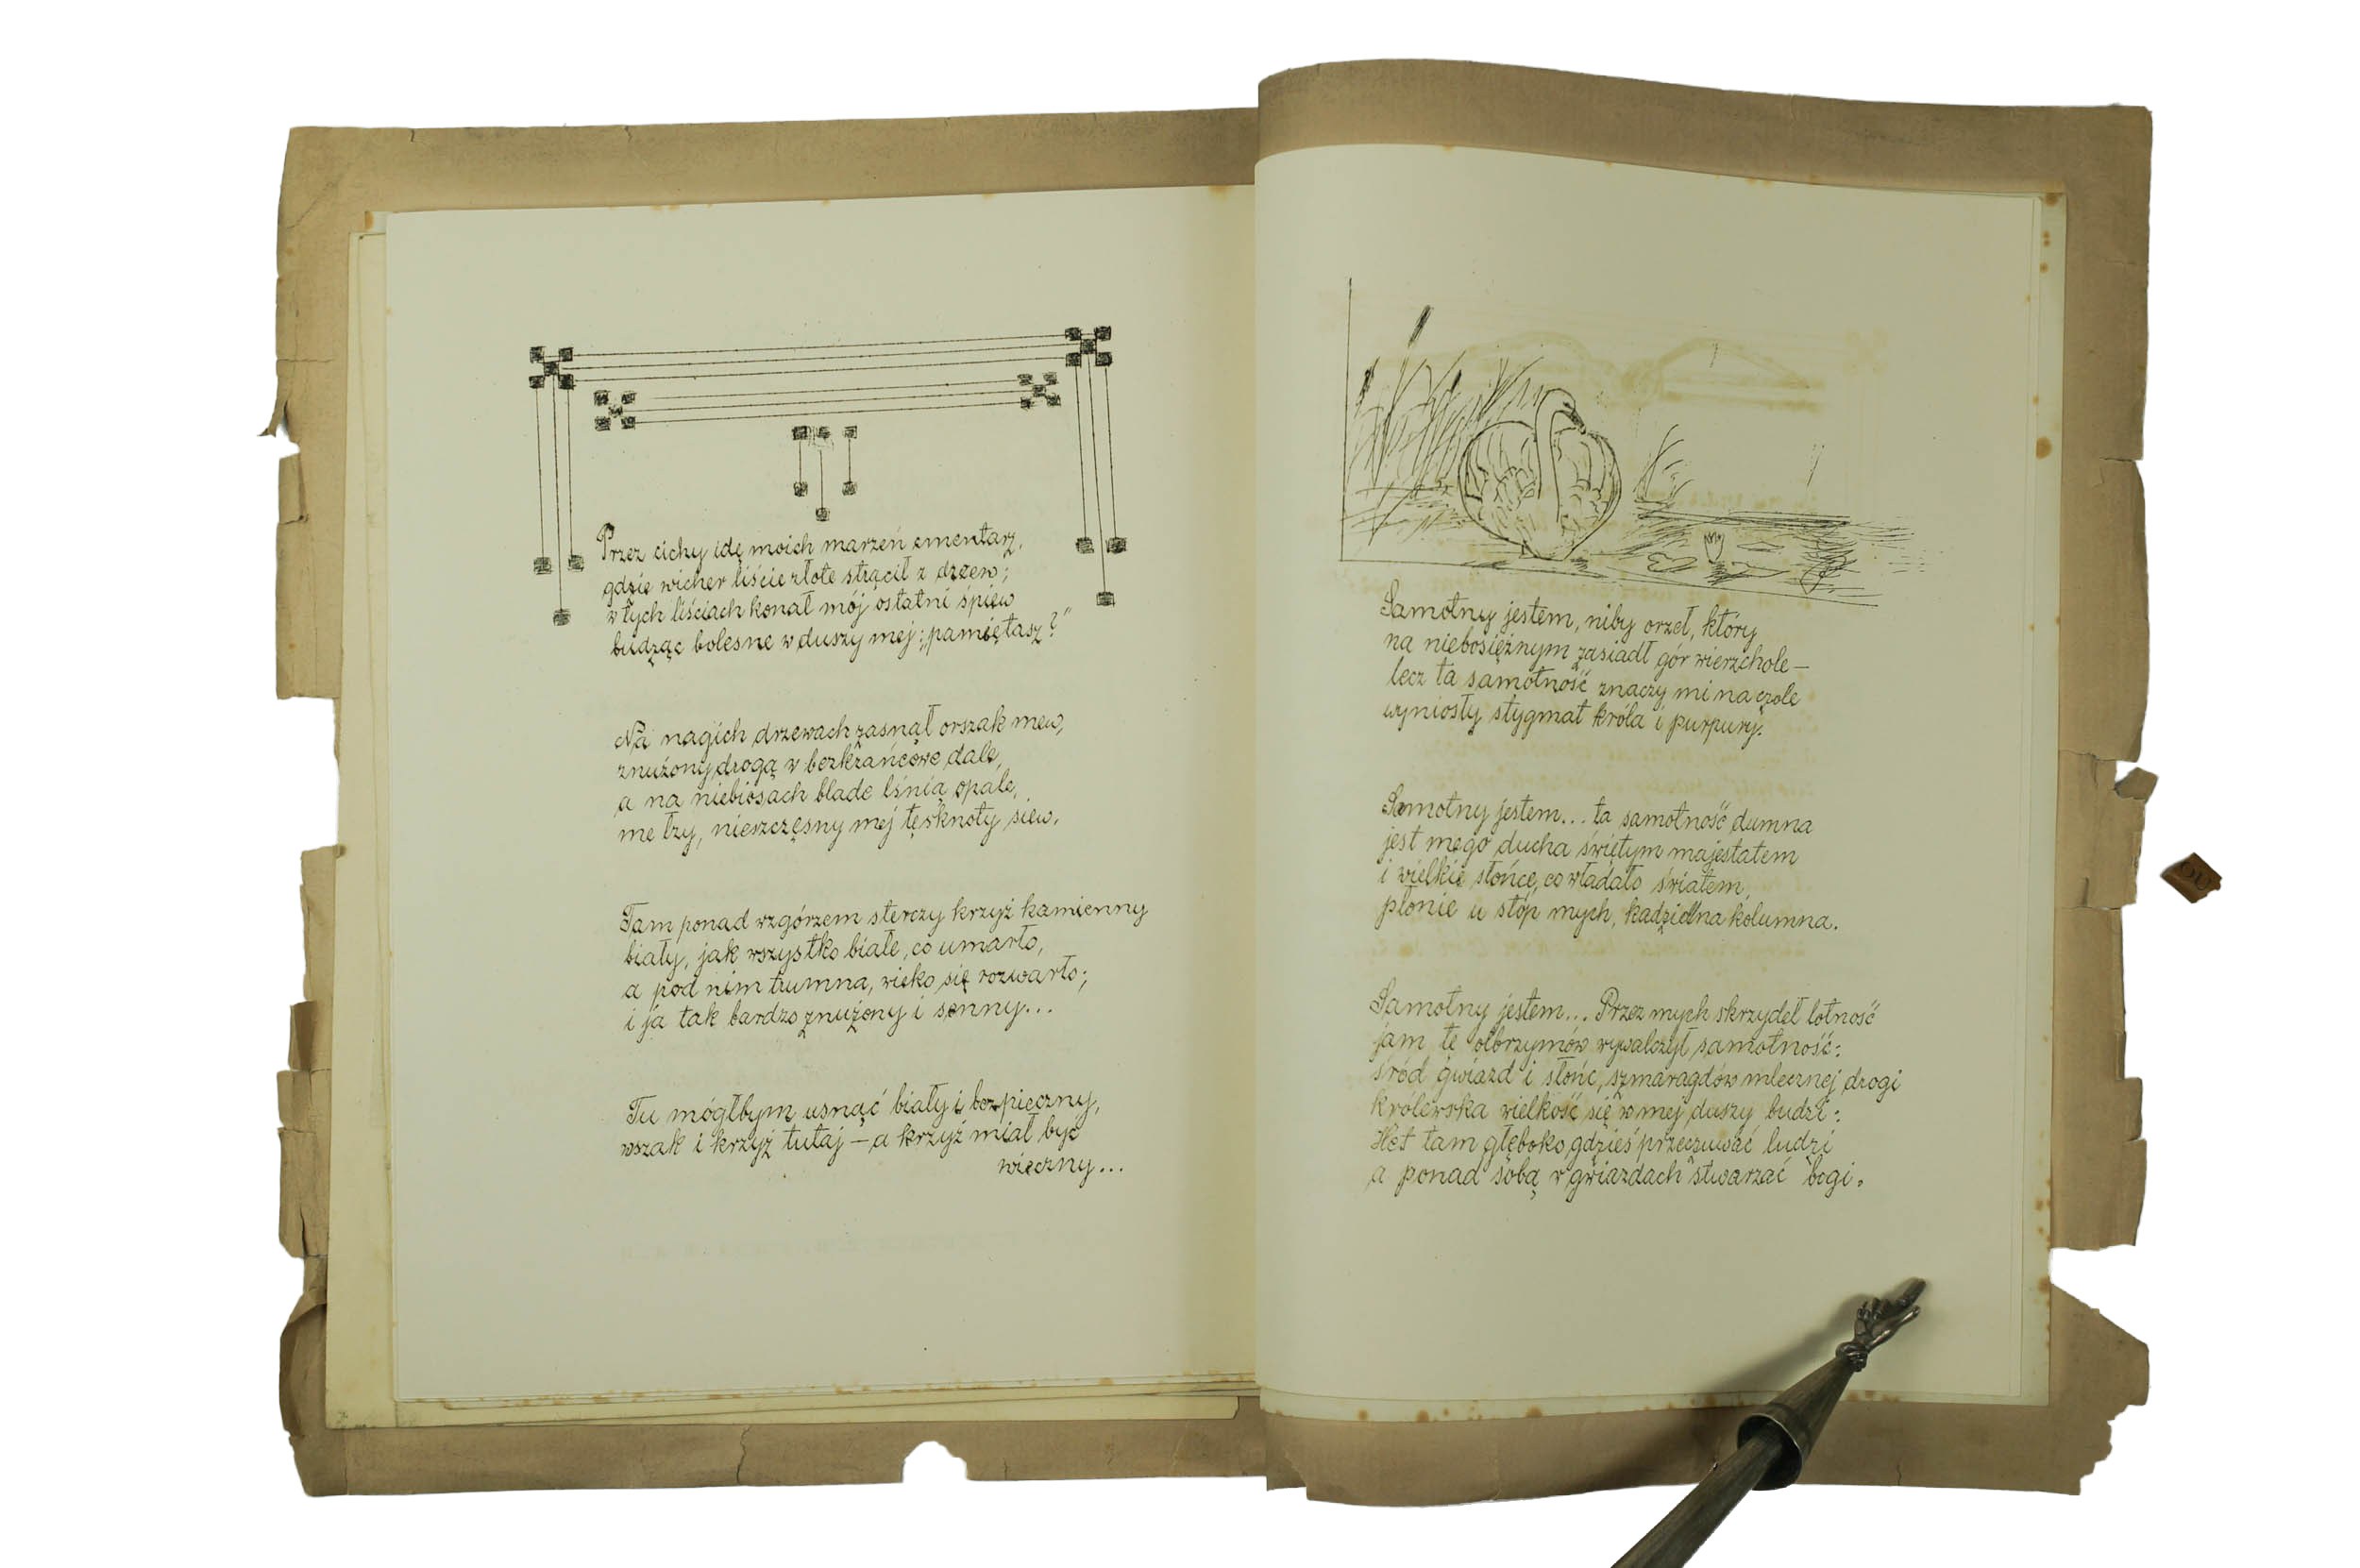 Przez cichy idę moich marzeń cmentarz,
gdzie wicher liście złote strącił z drzew;
w tych liściach konał mój ostatni śpiew
budząc bolesne w duszy mej: „pamiętasz?"
Na nagich drzewach zasnął orszak mew,
znużony drogą w bezkrańcowe dale,
a na niebiosach blade lśnią opale,
me łzy, nieszczęsny mej tęsknoty siew.
Tam ponad wzgórzem sterczy krzyż kamienny
biały, jak wszystko białe, co umarło,
a pod nim trumna, wieko się rozwarło;
i ja tak bardzo znużony i senny...
Tu mógłbym usnąć biały i bezpieczny,
wszak i krzyż tutaj — a krzyż miał być
wieczny...
Samotny jestem, niby orzeł, który
na niebosiężnym zasiadł gór wierzchole —
lecz ta samotność znaczy mi na czole
wyniosły stygmat króla i purpury.
Samotny jestem... ta samotność dumna
jest mego ducha świętym majestatem
i wielkie słońce, co władało światem,
płonie u stóp mych, kadzidlna kolumna.
Samotny jestem... Przez mych skrzydeł lotność
jam tę olbrzymów wywalczył samotność:
śród gwiazd i słońc, szmaragdów mlecznej drogi
królewska wielkość się w mej duszy budzi:
Het tam głęboko gdzieś przeczuwać ludzi
a ponad sobą w gwiazdach stwarzać bogi.